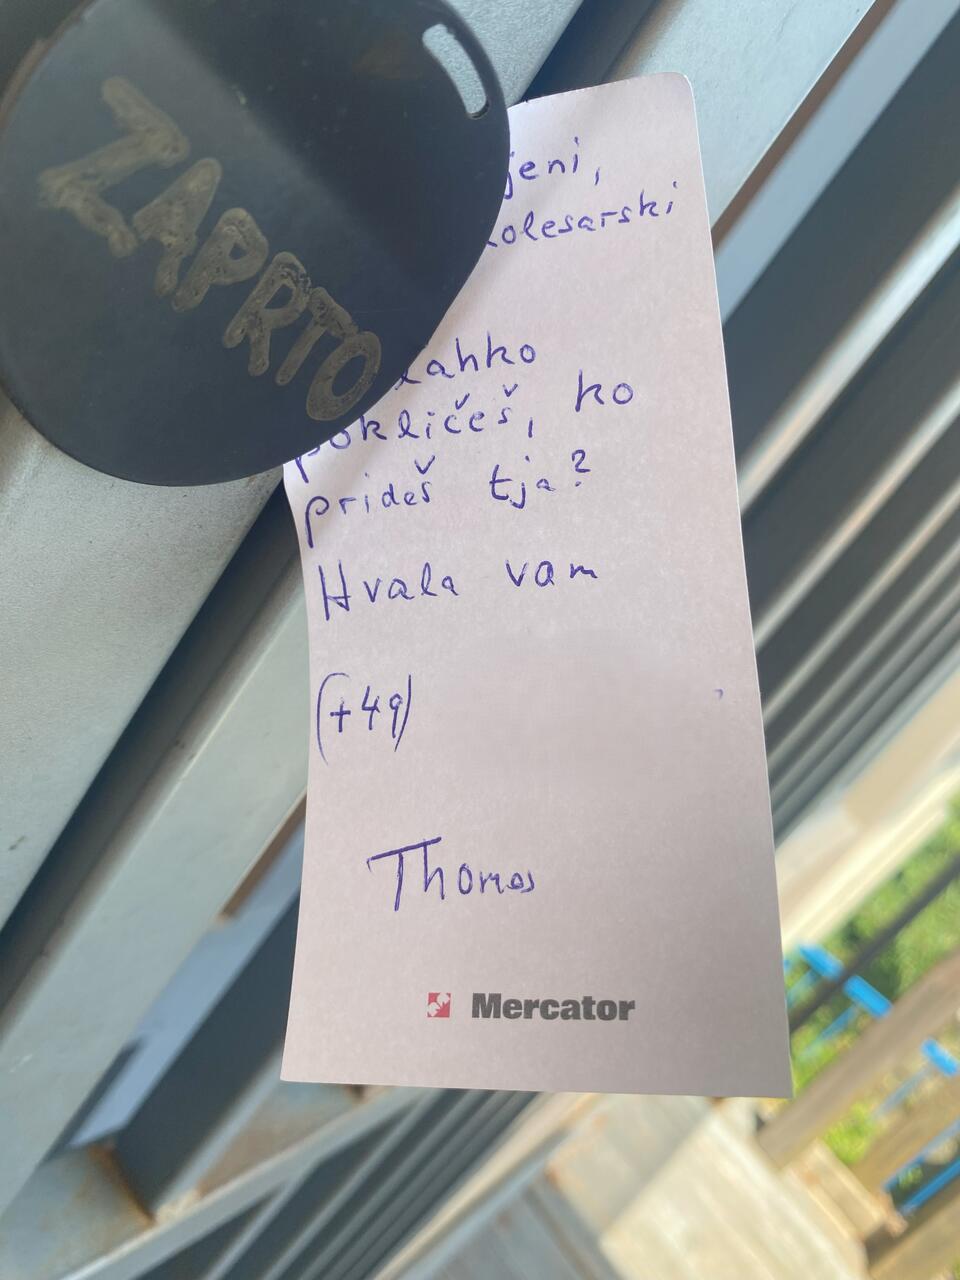 ZAPRTO
jeni,
kolesarski
lahko
pokličeš, ko
prideš tja?
Hvala vam
(+49)
Thomas
Mercator